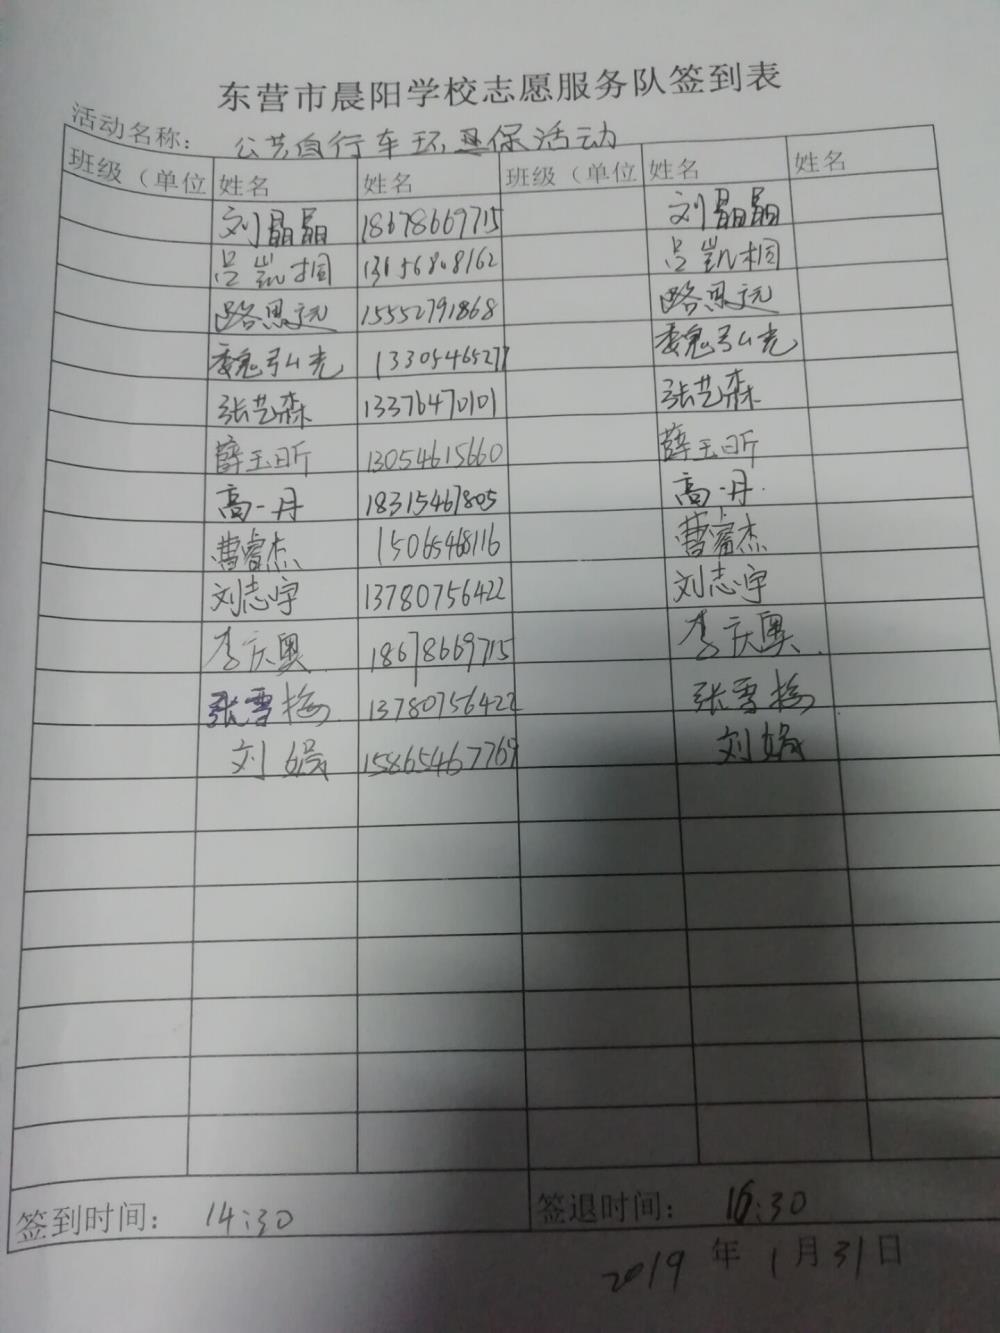 东营市晨阳学校志愿服务队签到表
活动名称： 公共自行车环保活动
班级（单位 姓名 姓名 班级（单位 姓名 姓名
刘晶晶 18678669715 刘晶晶
吕凯桐 13156808162 吕凯桐
路思远 15552791868 路思远
魏弘光 13305465277 魏弘光
张艺森 13376470101 张艺森
薛玉昕 13054615660 薛玉昕
高一丹 18315467805 高一丹
曹睿杰 15065468116 曹睿杰
刘志宇 13780756422 刘志宇
李庆奥 18678669715 李庆奥
张雪梅 13780756422 张雪梅
刘娟 15865467769 刘娟
签到时间： 14:30 签退时间： 16:30
2019 年 1 月 31 日